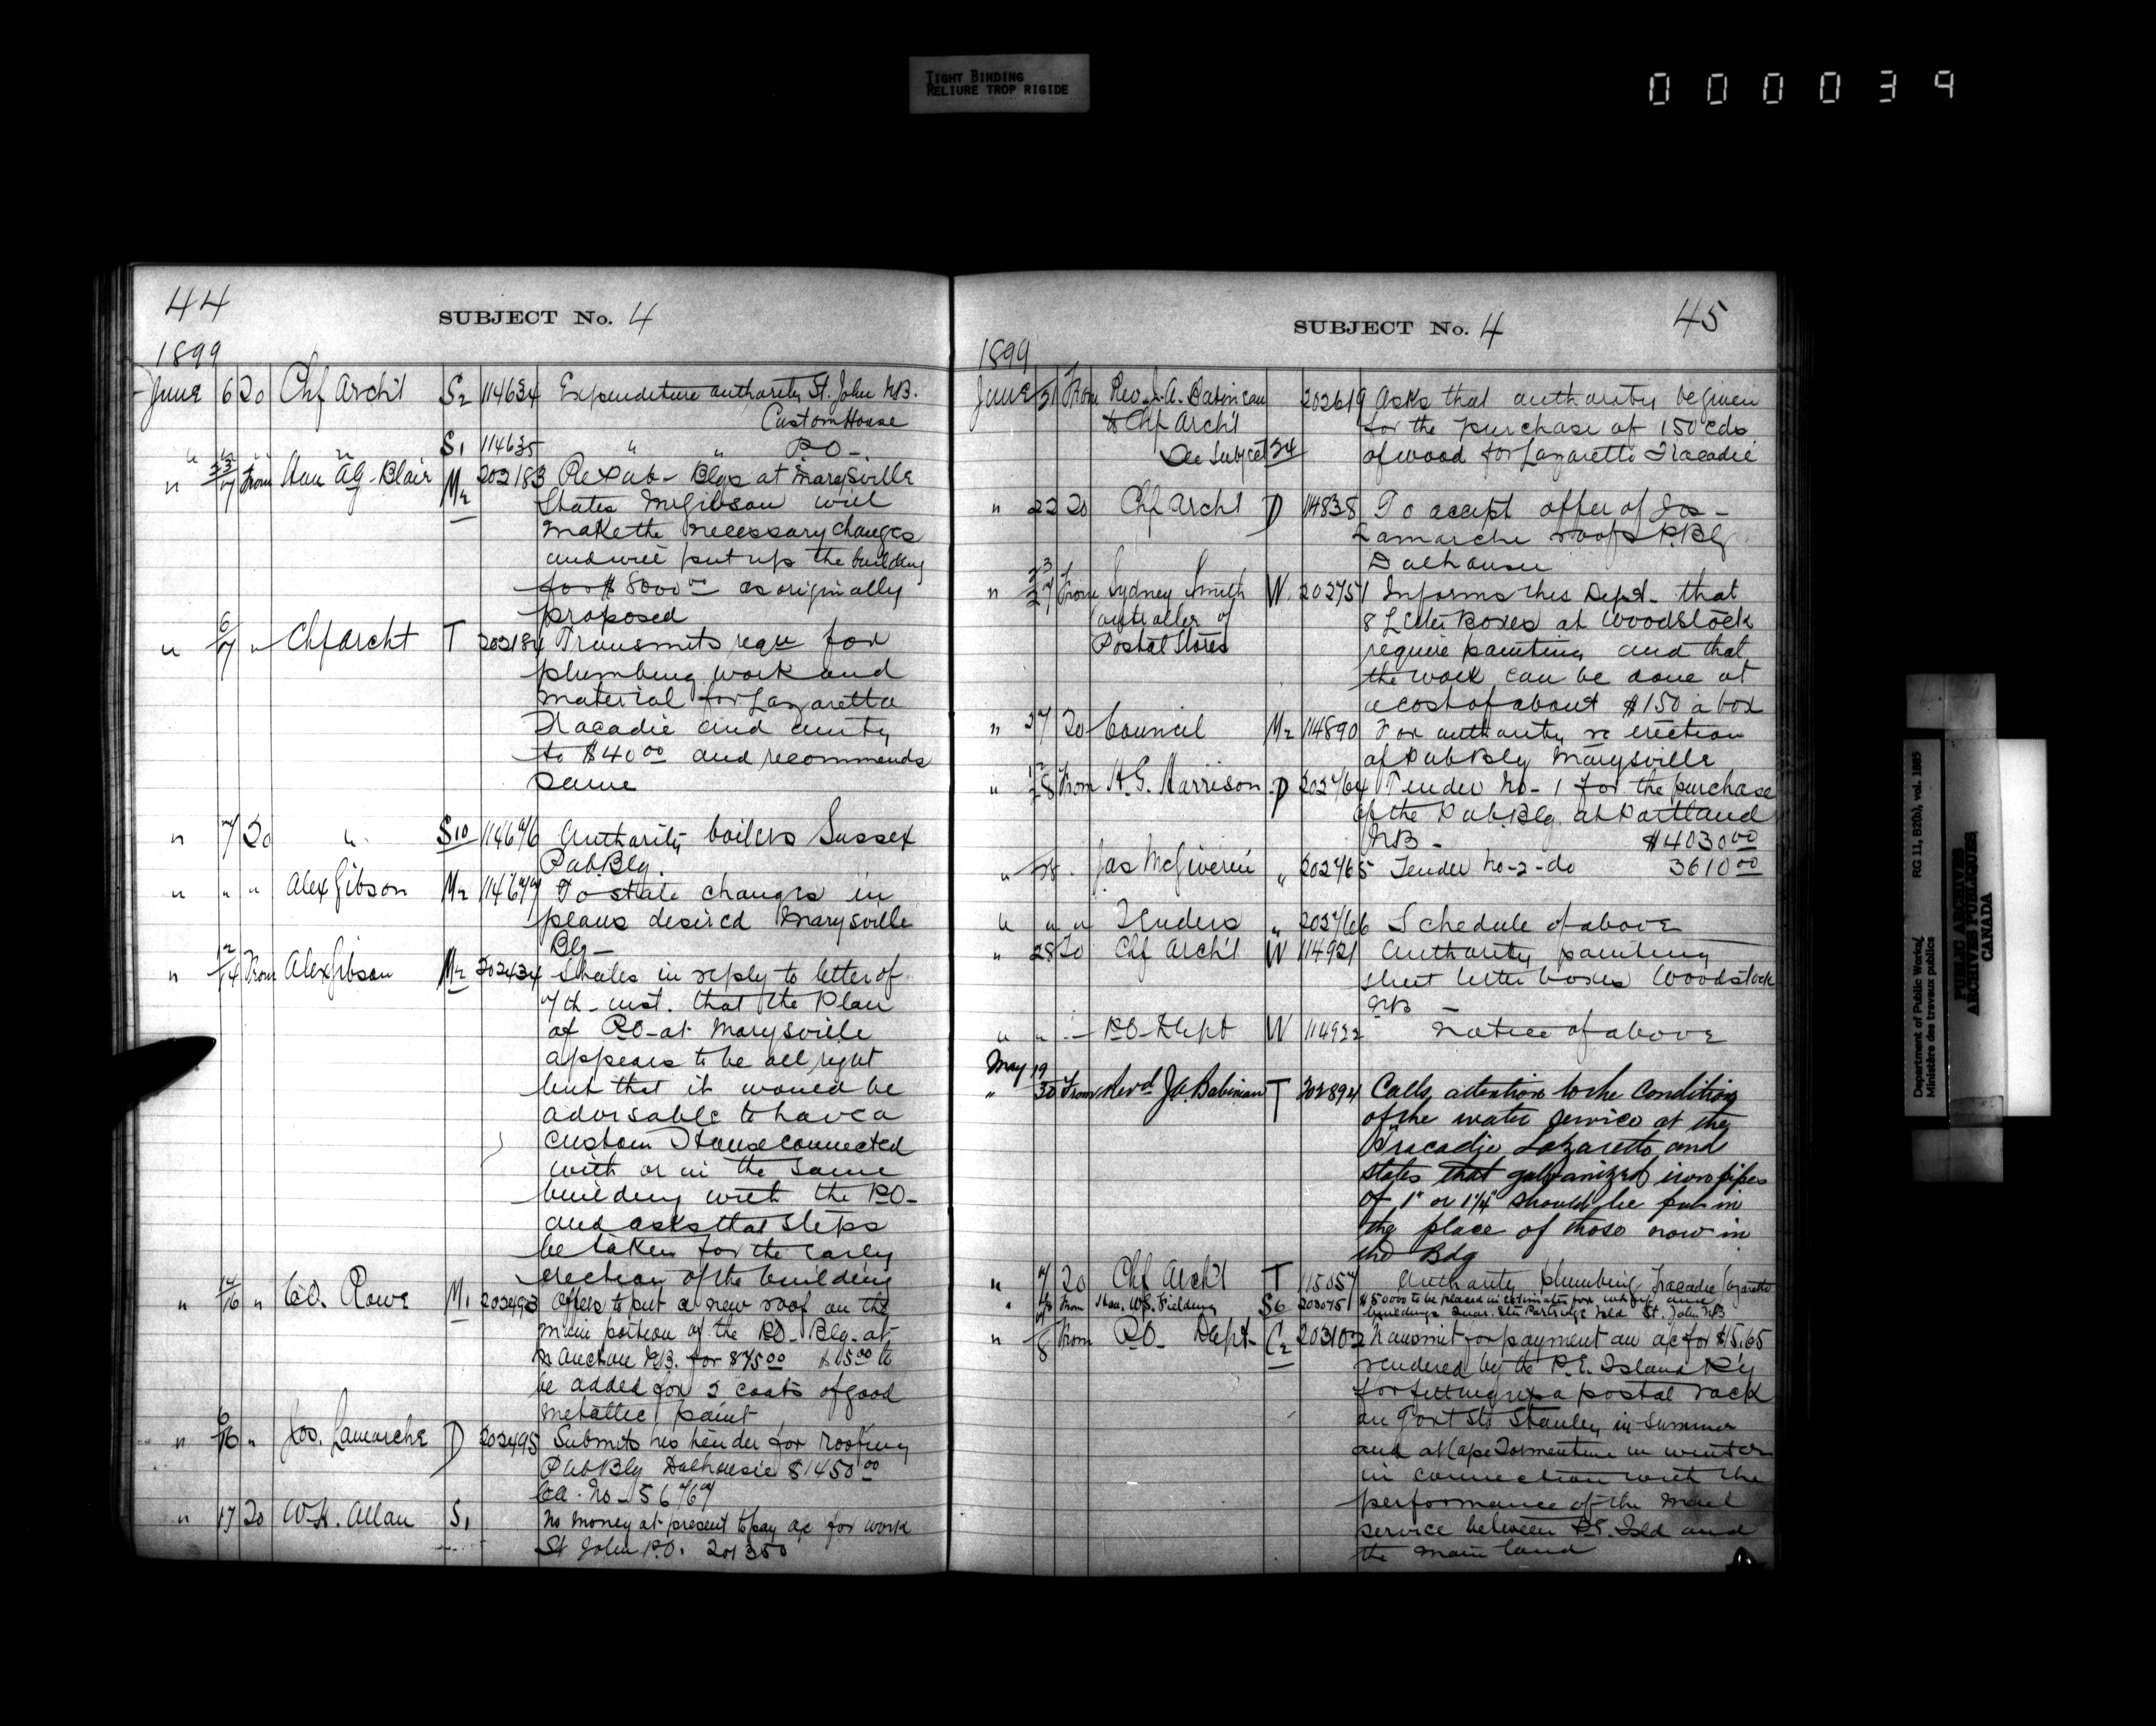 TIGHT BINDING
RELIURE TROP RIGIDE
000039
44
SUBJECT No. 4
1899
June 6 To Chf Arch't S2 114634 Expenditure authority St. John NB.
Custom House
" " " " S1 114635 " " P.O -
" 23/7 From Hon AG. Blair M2 202183 Re Pub- Blgs at Marysville
States Mr Gibson will
make the necessary changes
and will put up the building
for $8000 00 as originally
proposed
" 6/7 " Chf Archt T 202184 Transmits requ for
plumbing work and
material for Lazaretto
Tracadie and
to $40 00 and recommends
same
" 7 To " S10 114676 Authority boilers Sussex
Pub. Blg.
" " " Alex Gibson M2 114677 To state changes in
plans desired Marysville
Blg -
" 12/14 From Alex Gibson M2 202434 States in reply to letter of
7th inst. that the Plan
of P.O - at Marysville
appears to be all right
but that it would be
advisable to have a
Custom House connected
with or in the same
building with the P.O -
and asks that steps
be taken for the early
erection of the building
" 14/16 " C.D. Rowe M1 202493 Offers to put a new roof on the
main portion of the P.O - Blg - at
NB. for $75 00 $15 00 to
be added for 2 coats of good
metallic paint
" 6/16 " Jos. Lamarche D 202495 Submits his tender for Roofing
Pub Blg Dalhousie $1450 00
No - 56767
" 17 To W.K. Allan S1 No money at present to pay a/c for work
St John P.O. 201350
SUBJECT No. 4
45
1899
June 21 From Rev. J. A. Babineau 202619 Asks that authority be given
to Chf Arch't for the purchase of 150 cds
See Subject 24 of wood for Lazaretto Tracadie
" 22 To Chf Archt D 114838 To accept offer of Jos -
Lamarche roof P. Blg
Dalhousie
" 23/27 From Sydney Smith W. 202751 Informs this Dept. that
Controller of 8 Letter Boxes at Woodstock
Postal Stores require painting and that
the work can be done at
a cost of about $1 50 a box
" 27 To Council M2 114890 For authority re erection
of Pub Blg Marysville
" 12/28 From H.G. Harrison D 202764 Tender No - 1 for the purchase
of the Pub. Blg. at Portland
NB - $4030 00
" 28 . Jas McGiverin " 202765 Tender No - 2 - do 3610 00
" " " Tenders " 202766 Schedule of above
" 28 To Chf Arch't W 114921 Authority painting
street letter boxes Woodstock
NB -
" " - P.O - Dept W 114922 Notice of above
May 19
" 30 From Revd J.A. Babineau T 202894 Calls attention to the condition
of the water service at the
Tracadie Lazaretto and
states that galvanized iron pipes
of 1" or 1 1/4" should be put in
the place of those now in
the Bdg
" 7 To Chf Arch't T 115057 Authority plumbing Tracadie Lazaretto
" From Hon. W.S. Fielding S6 203075 $50000 to be placed in estimates for wharf and
buildings Quar. Stn Partridge Isld St. John NB
" 8 From P.O - Dept - C2 203102 Transmit for payment an a/c for $15.65
rendered by the P.E. Island R'y
for fitting up a postal rack
on Govt Str Stanley in summer
and at Cape Tormentine in winter
in connection with the
performance of the Mail
service between P.E. Isld and
the main land
Department of Public Works/
Ministère des travaux publics
RG 11, B2(b), vol. 1885
PUBLIC ARCHIVES
ARCHIVES PUBLIQUES
CANADA